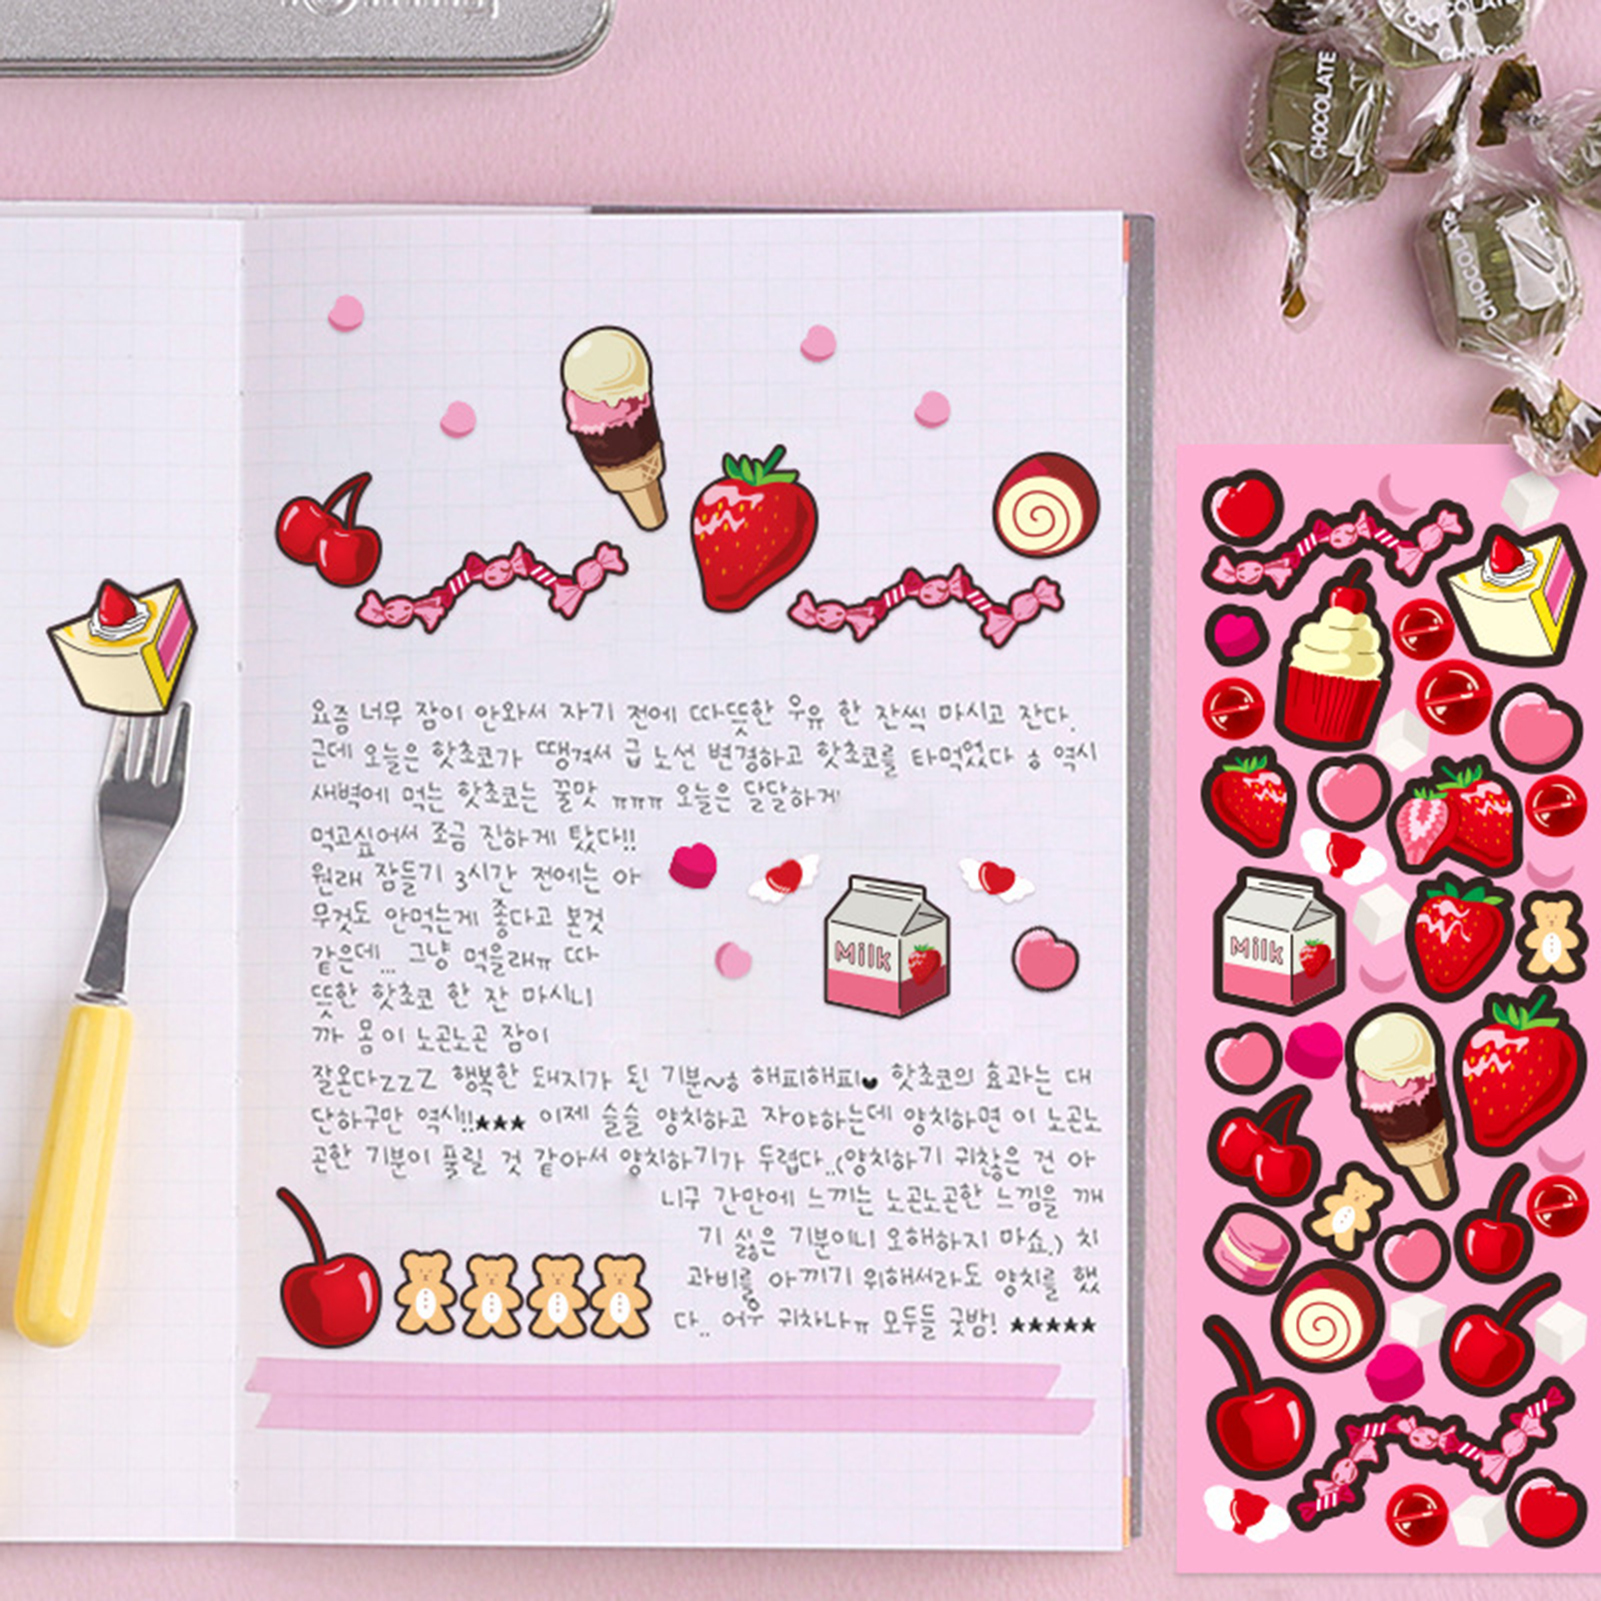 CHOCOLATE
CHOCOLATE
CHOCOLATE
요즘 너무 잠이 안와서 자기 전에 따뜻한 우유 한 잔씩 마시고 잔다.
근데 오늘은 핫초코가 땡겨서 급 노선 변경하고 핫초코를 타먹었다 ㅎ 역시
새벽에 먹는 핫초코는 꿀맛 ㅠㅠㅠ 오늘은 달달하게
먹고싶어서 조금 진하게 탔다!!
원래 잠들기 3시간 전에는 아
무것도 안먹는게 좋다고 본것
같은데... 그냥 먹을래ㅠ 따
뜻한 핫초코 한 잔 마시니
까 몸이 노곤노곤 잠이
잘온다zzZ 행복한 돼지가 된 기분~ㅎ 해피해피♥ 핫초코의 효과는 대
단하구만 역시!!★★★ 이제 슬슬 양치하고 자야하는데 양치하면 이 노곤노
곤한 기분이 풀릴 것 같아서 양치하기가 두렵다..(양치하기 귀찮은 건 아
니구 간만에 느끼는 노곤노곤한 느낌을 깨
기 싫은 기분이니 오해하지 마쇼.) 치
과비를 아끼기 위해서라도 양치를 했
다.. 어우 귀차나ㅠ 모두들 굿밤! ★★★★★
Milk
Milk